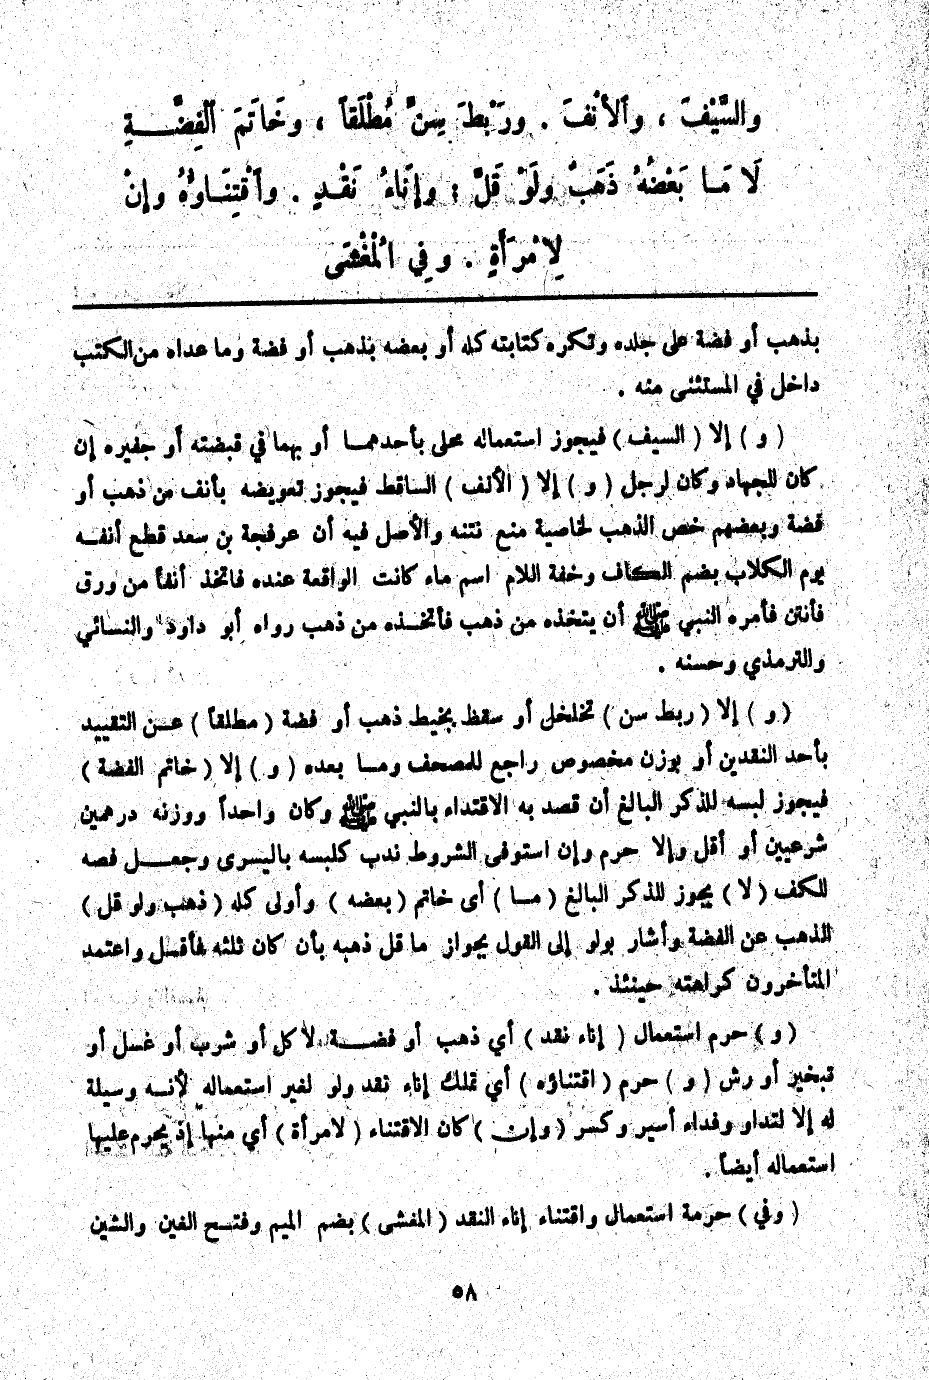 والسَّيْفَ ، والأنْفَ . ورَبْطَ سِنٍّ مُطْلَقاً ، وخَاتَمَ الفِضَّـــةِ
لَا مَـا بَعْضُهُ ذَهَبٌ ولَوْ قَلَّ ؛ وإنَاءُ نَقْـدٍ . واقْتِنَـاؤُهُ وإنْ
لِامْرَأَةٍ . وفِي المُغْشَى
بذهب أو فضة على جلده وتكره كتابته كله أو بعضه بذهب أو فضة وما عداه من الكتب
داخل في المستثنى منه .
( و ) إلا ( السيف ) فيجوز استعماله محلى بأحدهمـا أو بهما في قبضته أو جفيره إن
كان للجهاد وكان لرجل ( و ) إلا ( الأنف ) الساقط فيجوز تعويضه بأنف من ذهب أو
فضة وبعضهم خص الذهب لخاصية منع نتنه والأصل فيه أن عرفجة بن سعد قطع أنفـه
يوم الكلاب بضم الكاف وخفة اللام اسم ماء كانت الواقعة عنده فاتخذ أنفاً من ورق
فأنتن فأمره النبي ﷺ أن يتخذه من ذهب فأتخـذه من ذهب رواه أبو داود والنسائي
والترمذي وحسنه .
( و ) إلا ( ربط سن ) تخلخل أو سقط بخيط ذهب أو فضة ( مطلقاً ) عـن التقييد
بأحد النقدين أو بوزن مخصوص راجع للمصحف ومـا بعده ( و ) إلا ( خاتم الفضة )
فيجوز لبسه للذكر البالغ أن قصد به الاقتداء بالنبي ﷺ وكان واحداً ووزنه درهمين
شرعيين أو أقل وإلا حرم وإن استوفى الشروط ندب كلبسه باليسرى وجعـل فصه
للكف ( لا ) يجوز للذكر البالغ ( مـا ) أى خاتم ( بعضه ) وأولى كله ( ذهب ولو قل )
الذهب عن الفضة وأشار بولو إلى القول بجواز ما قل ذهبه بأن كان ثلثه فأقـل واعتمد
المتأخرون كراهته حينئذ .
( و ) حرم استعمال ( إناء نقد ) أي ذهب أو فضـة لأكل أو شرب أو غسل أو
تبخير أو رش ( و ) حرم ( اقتناؤه ) أي تملك إناء نقد ولو لغير استعماله لأنـه وسيلة
له إلا لتداو وفداء أسير وكسر ( وإن ) كان الاقتناء ( لامرأة ) أي منها إذ يحرم عليها
استعماله أيضاً .
( وفي ) حرمة استعمال واقتناء إناء النقد ( المغشى ) بضم الميم وفتـح الغين والشين
٥٨